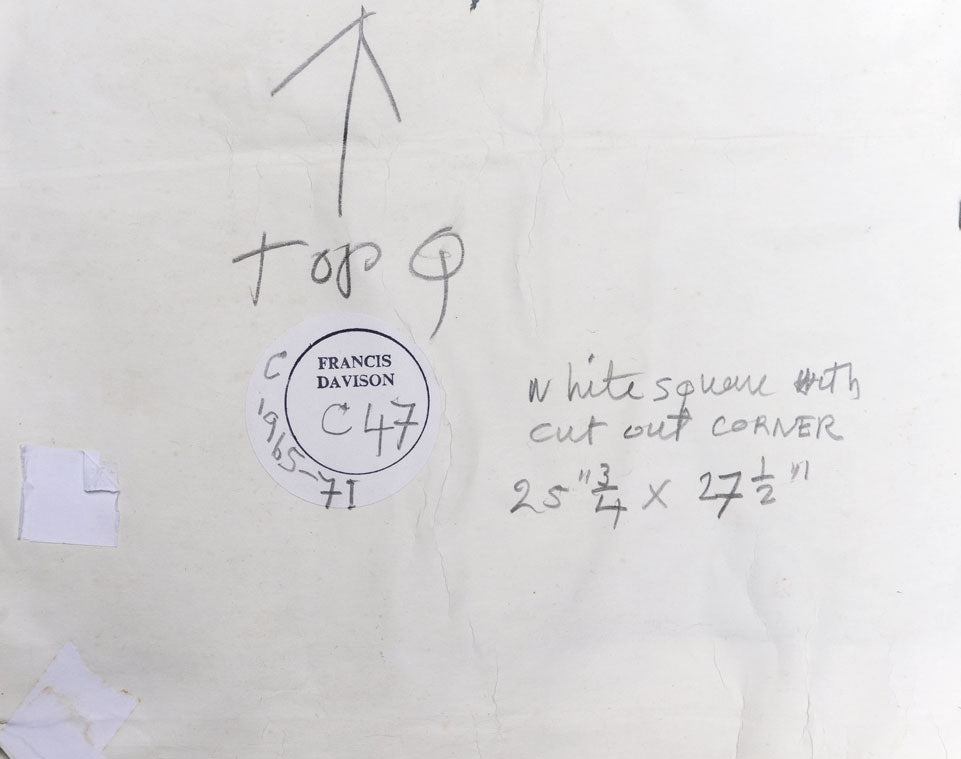 top 9
FRANCIS
DAVISON
C47
C 1965-71
White square with
cut out CORNER
25"3/4 x 27 1/2"